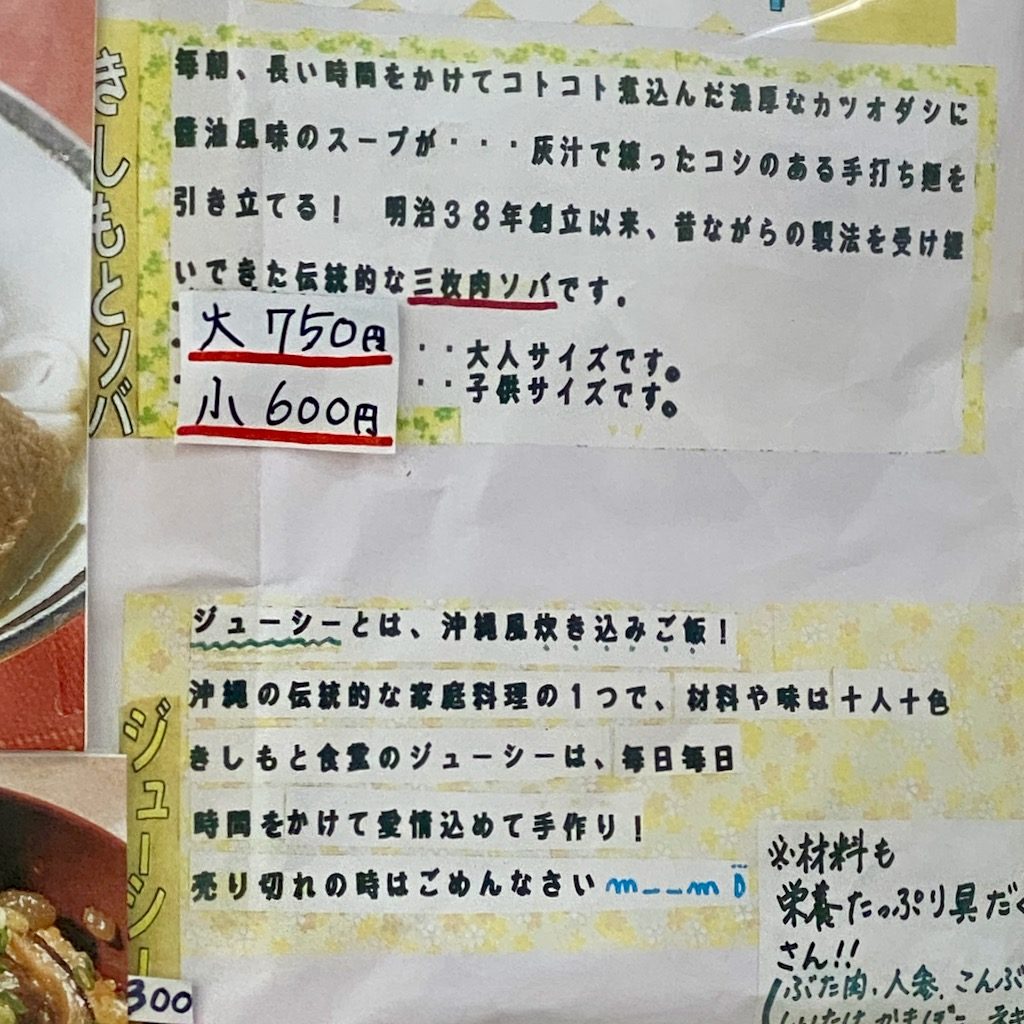 きしもとソバ
毎朝、長い時間をかけてコトコト煮込んだ濃厚なカツオダシに
醤油風味のスープが・・・灰汁で練ったコシのある手打ち麺を
引き立てる！　明治３８年創立以来、昔ながらの製法を受け継
いできた伝統的な三枚肉ソバです。
大 750円 ・・大人サイズです。
小 600円 ・・子供サイズです。
ジューシー
ジューシーとは、沖縄風炊き込みご飯！
沖縄の伝統的な家庭料理の１つで、材料や味は十人十色
きしもと食堂のジューシーは、毎日毎日
時間をかけて愛情込めて手作り！
売り切れの時はごめんなさいm__m
300
※材料も
栄養たっぷり具だく
さん!!
(ぶた肉、人参、こんぶ
しいたけ かまぼこ